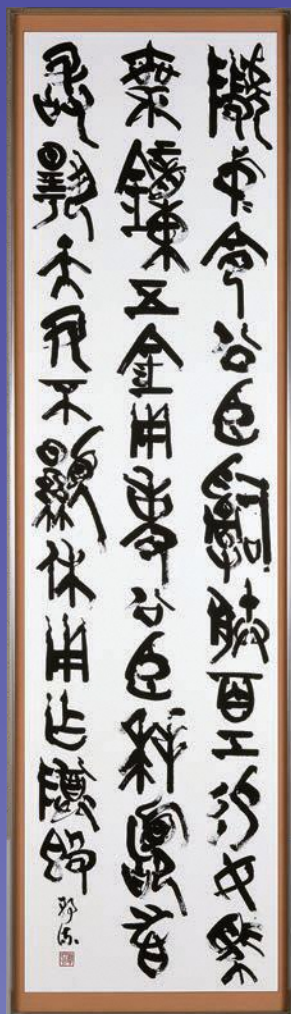 虢中令公臣𤔲朕百工易女馬
乘鐘五金用事公臣拜𩒨首
敢揚天尹不顯休用乍尊𣪘